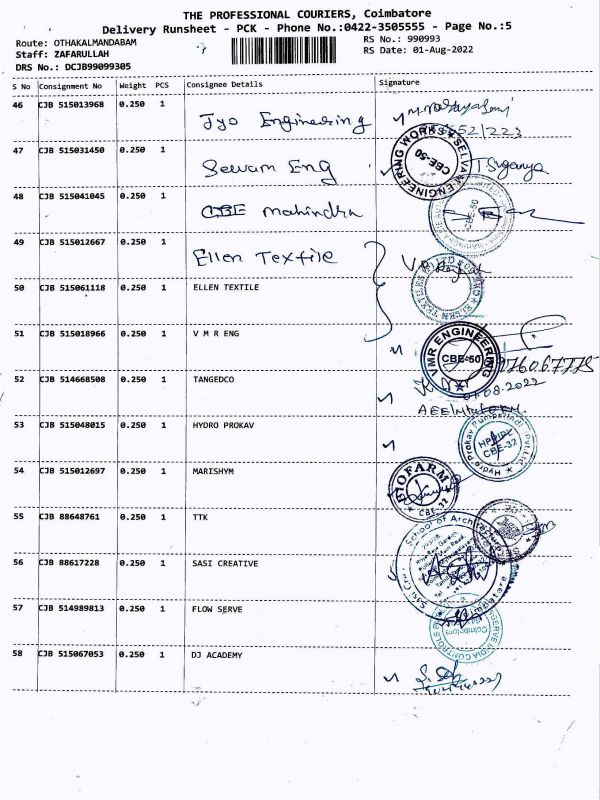 THE PROFESSIONAL COURIERS, Coimbatore
Delivery Runsheet - PCK - Phone No.:0422-3505555 - Page No.:5
Route: OTHAKALMANDABAM
RS No.: 990993
Staff: ZAFARULLAH
RS Date: 01-Aug-2022
DRS No.: DCJB99099305
S No Consignment No Weight PCS Consignee Details Signature
46 CJB 515013968 0.250 1 Jyo Engineering
47 CJB 515031450 0.250 1 Selvam Eng T Suganya
ENGINEERING WORKS ★ SELVAN CBE-50
48 CJB 515041045 0.250 1 CBE Mahindra
CBE-50
49 CJB 515012667 0.250 1 Ellen Textile
50 CJB 515061118 0.250 1 ELLEN TEXTILE
51 CJB 515018966 0.250 1 V M R ENG
VMR ENGINEERING CBE-50
52 CJB 514668508 0.250 1 TANGEDCO
01.08.2022
53 CJB 515048015 0.250 1 HYDRO PROKAV
Hydro Prokav Pumps (India) Pvt. Ltd. HPPIPL CBE-32
54 CJB 515012697 0.250 1 MARISHYM
BIOFARMS CBE-32
55 CJB 88648761 0.250 1 TTK
School of Architecture
56 CJB 88617228 0.250 1 SASI CREATIVE
57 CJB 514989813 0.250 1 FLOW SERVE
SERVE INDIA CONTROLS Coimbatore
58 CJB 515067053 0.250 1 DJ ACADEMY